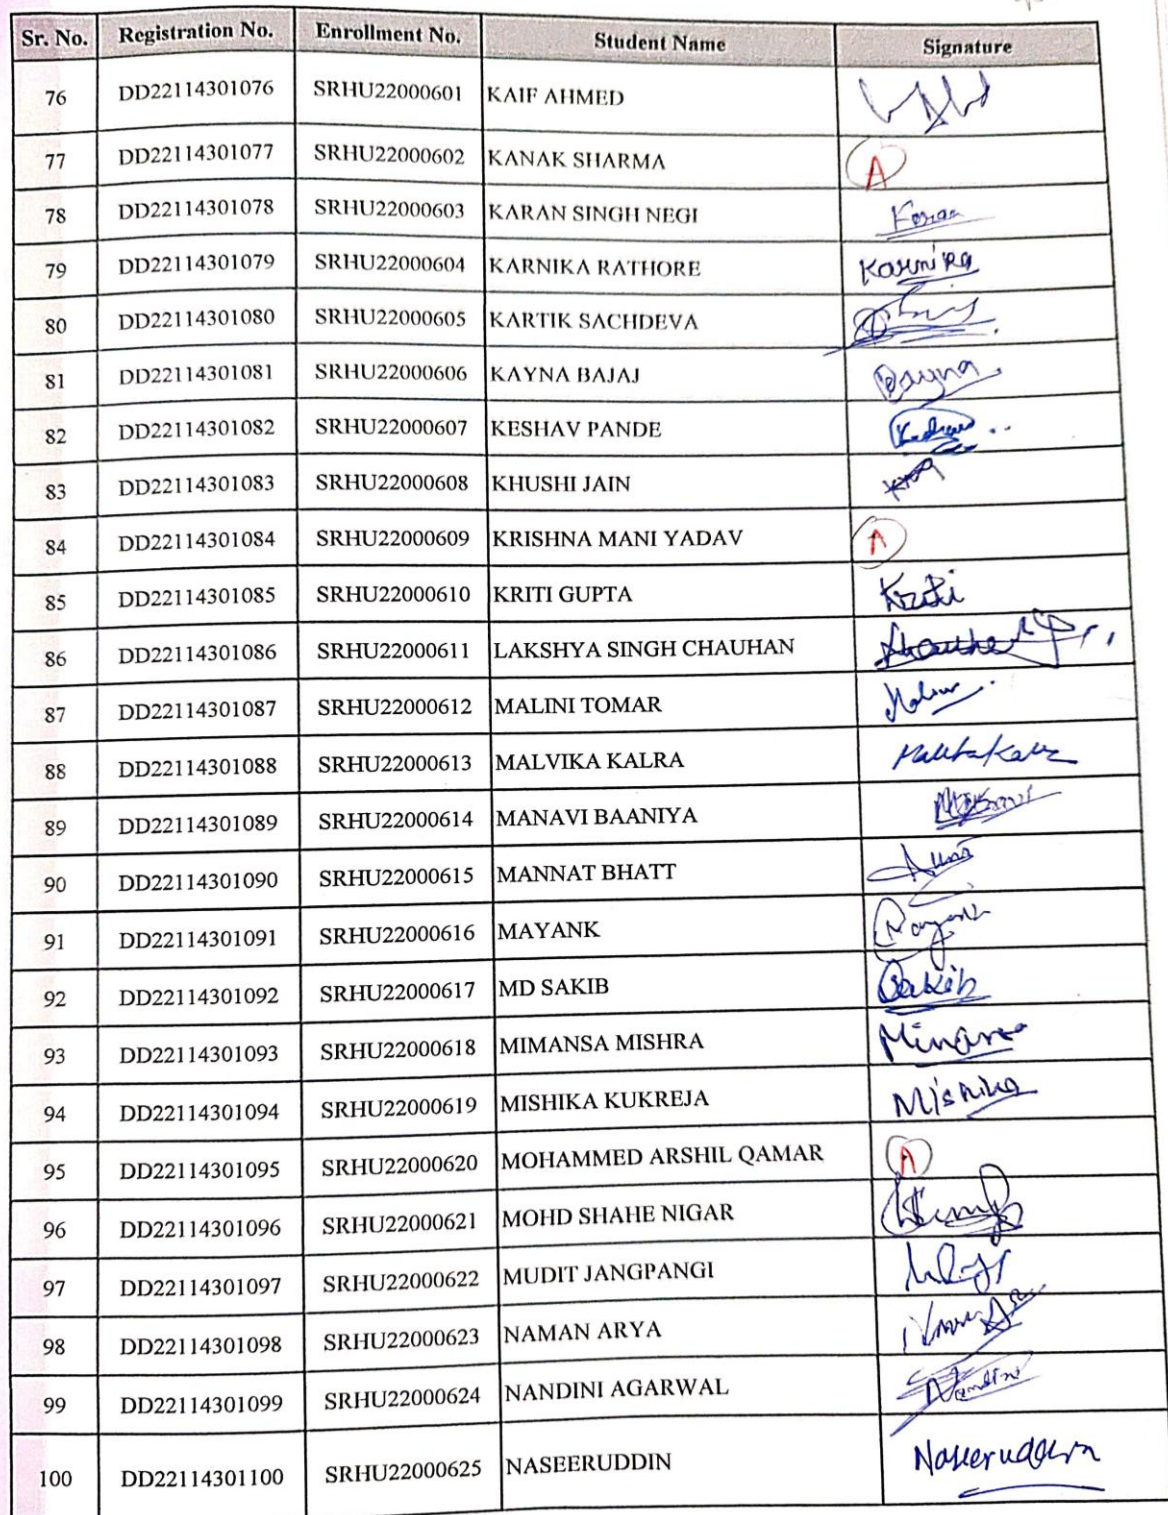 Sr. No. Registration No. Enrollment No. Student Name Signature
76 DD22114301076 SRHU22000601 KAIF AHMED
77 DD22114301077 SRHU22000602 KANAK SHARMA A
78 DD22114301078 SRHU22000603 KARAN SINGH NEGI Karan
79 DD22114301079 SRHU22000604 KARNIKA RATHORE Karnika
80 DD22114301080 SRHU22000605 KARTIK SACHDEVA
81 DD22114301081 SRHU22000606 KAYNA BAJAJ
82 DD22114301082 SRHU22000607 KESHAV PANDE
83 DD22114301083 SRHU22000608 KHUSHI JAIN
84 DD22114301084 SRHU22000609 KRISHNA MANI YADAV A
85 DD22114301085 SRHU22000610 KRITI GUPTA Kriti
86 DD22114301086 SRHU22000611 LAKSHYA SINGH CHAUHAN
87 DD22114301087 SRHU22000612 MALINI TOMAR
88 DD22114301088 SRHU22000613 MALVIKA KALRA
89 DD22114301089 SRHU22000614 MANAVI BAANIYA
90 DD22114301090 SRHU22000615 MANNAT BHATT
91 DD22114301091 SRHU22000616 MAYANK Mayank
92 DD22114301092 SRHU22000617 MD SAKIB Sakib
93 DD22114301093 SRHU22000618 MIMANSA MISHRA
94 DD22114301094 SRHU22000619 MISHIKA KUKREJA Mishika
95 DD22114301095 SRHU22000620 MOHAMMED ARSHIL QAMAR A
96 DD22114301096 SRHU22000621 MOHD SHAHE NIGAR
97 DD22114301097 SRHU22000622 MUDIT JANGPANGI
98 DD22114301098 SRHU22000623 NAMAN ARYA
99 DD22114301099 SRHU22000624 NANDINI AGARWAL Nandini
100 DD22114301100 SRHU22000625 NASEERUDDIN Naseeruddin